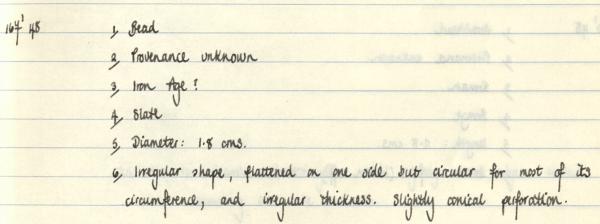 164' 48 1, Bead
2, Provenance unknown
3, Iron Age?
4, Slate
5, Diameter: 1.8 cms.
6, Irregular shape, flattened on one side but circular for most of its
circumference, and irregular thickness. Slightly conical perforation.